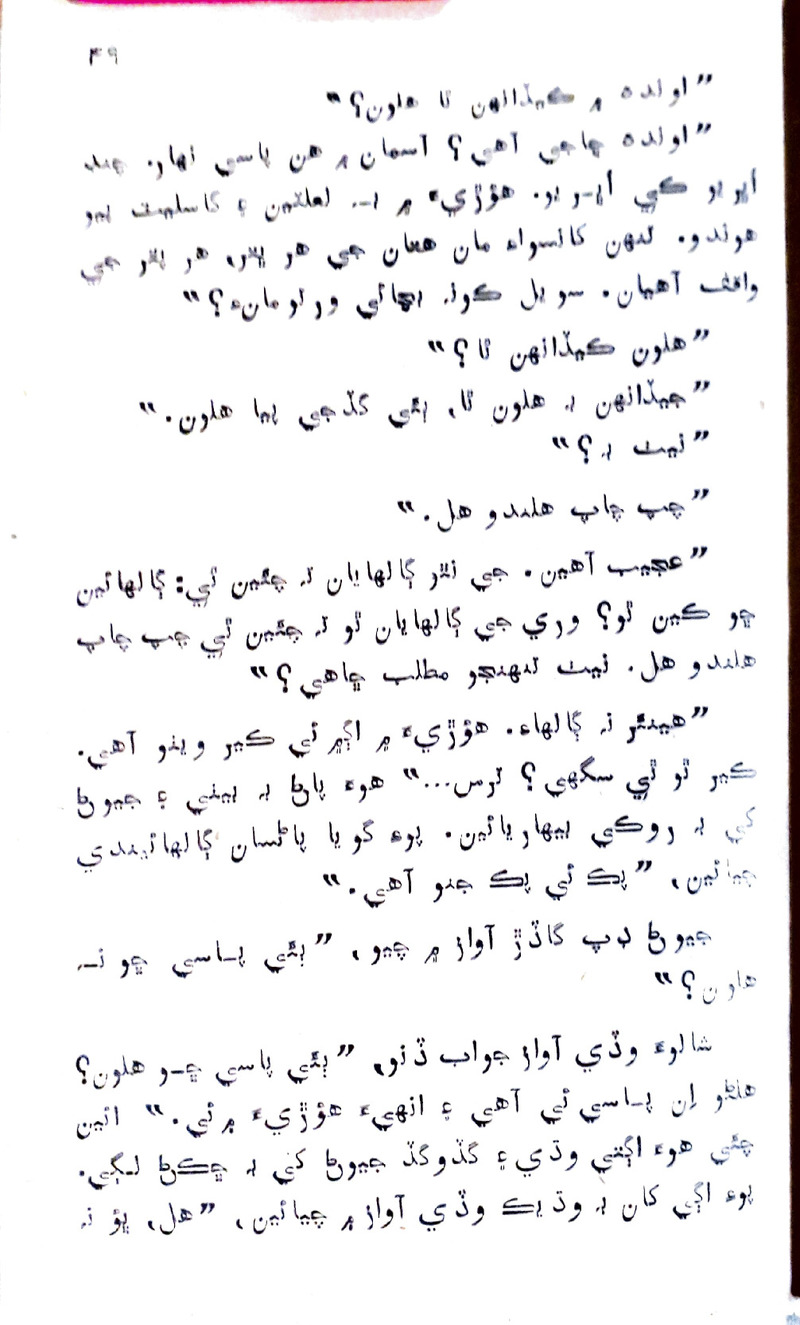 ۴۹
”اونده ۾ ڪيڏانهن ٿا هلون؟“
”اونده ڇاجي آهي؟ آسمان ۾ هن پاسي نهار. چنڊ
اڀريو ڪي اڀريو. هوڙيءَ ۾ بہ لعلٽين ۽ گاسليٽ پيو
هوندو. تنهن کانسواءِ مان هتان جي هر پٿر، هر پٿر جي
واقف آهيان. سويل ڪونہ بچائي ورتو مانءِ؟“
”هلون ڪيڏانهن ٿا؟“
”جيڏانهن بہ هلون ٿا، ٻئي گڏجي پيا هلون.“
”نيٺ بہ؟“
”چپ چاپ هلندو هل.“
”عجيب آهين. جي نٿو ڳالهايان تہ چئين ٿي: ڳالهائين
ڇو ڪين ٿو؟ وري جي ڳالهايان ٿو تہ چئين ٿي چپ چاپ
هلندو هل. نيٺ تنهنجو مطلب ڇاهي؟“
”هينئر نہ ڳالهاءِ. هوڙيءَ ۾ اڳ۾ ئي ڪير ويٺو آهي.
ڪير ٿو ٿي سگهي؟ ترس...“ هوءَ پاڻ بہ بيٺي ۽ جيوڻ
کي بہ روڪي بيهاريائين. پوءِ گويا پاڻسان ڳالهائيندي
چيائين، ”پڪ ئي پڪ جنو آهي.“
جيوڻ ڊپ گاڏڙ آواز ۾ چيو، ”ٻئي پاسي ڇو نہ
هلون؟“
شالوءَ وڏي آواز جواب ڏنو، ”ٻئي پاسي ڇو هلون؟
هلڻو اِن پاسي ئي آهي ۽ انهيءَ هوڙيءَ ۾ ئي.“ ائين
چئي هوءَ اڳتي وڌي ۽ گڏوگڏ جيوڻ کي بہ ڇڪڻ لڳي.
پوءِ اڳي کان بہ وڌيڪ وڏي آواز ۾ چيائين، ”هل، ڀؤ نہ